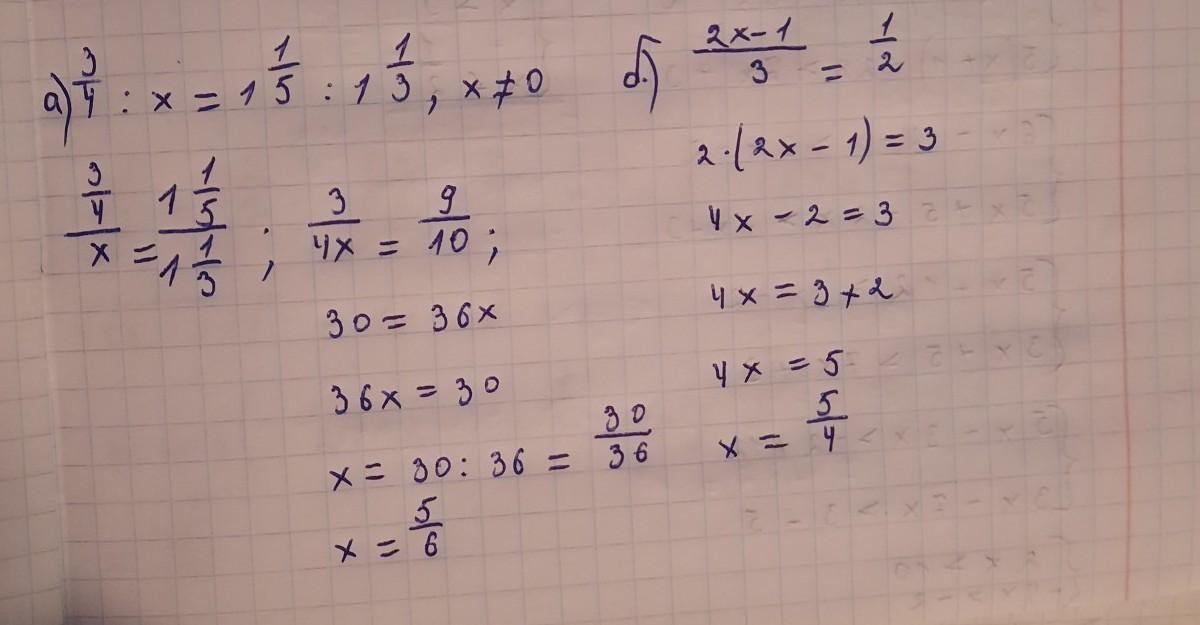 а) 3/4 : x = 1 1/5 : 1 1/3, x ≠ 0
(3/4)/x = (1 1/5)/(1 1/3); 3/4x = 9/10;
30 = 36x
36x = 30
x = 30 : 36 = 30/36
x = 5/6
б) (2x-1)/3 = 1/2
2·(2x - 1) = 3
4x - 2 = 3
4x = 3 + 2
4x = 5
x = 5/4